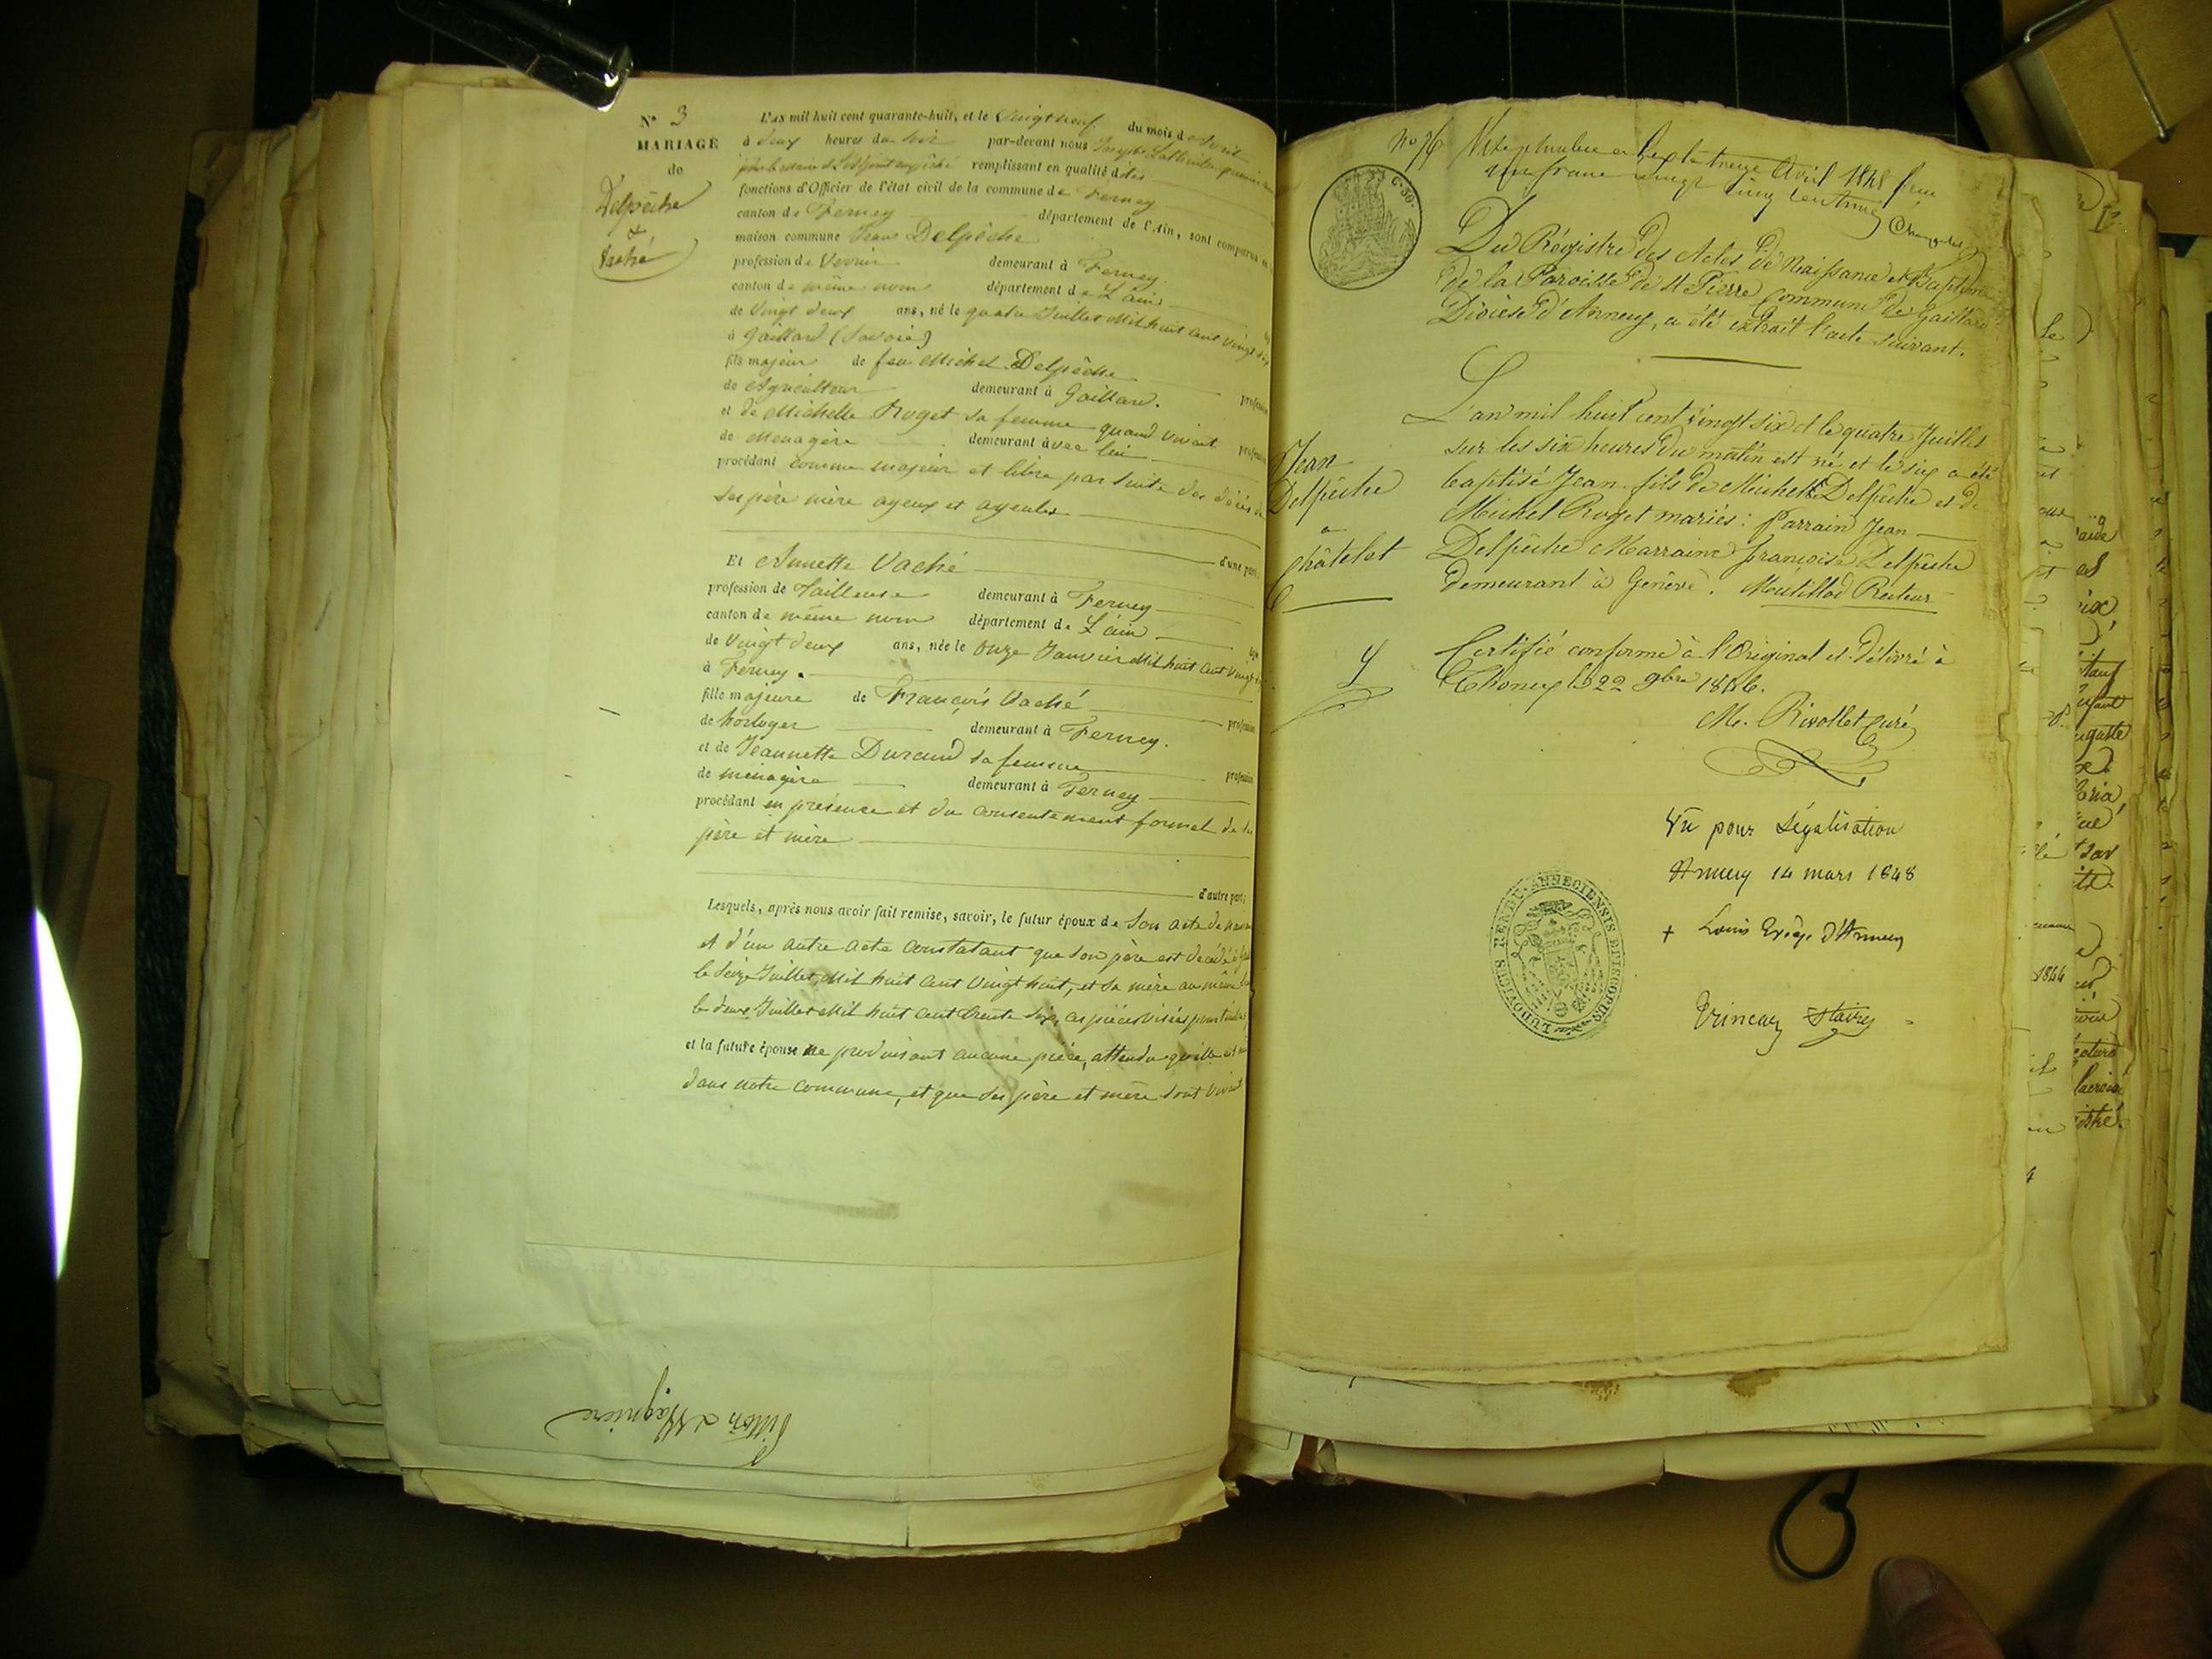 N° 3
MARIAGE
de
Delpèche
&
Vaché
L'an mil huit cent quarante-huit, et le vingt neuf du mois d'Avril
à deux heures du soir par-devant nous
remplissant en qualité d
fonctions d'Officier de l'état civil de la commune de Ferney
canton de Ferney département de l'Ain, sont comparus en
maison commune Jean Delpèche
profession de demeurant à Ferney
canton de même nom département de L'ain
de vingt deux ans, né le quatre Juillet mil huit cent vingt
à Gaillard (Savoie)
fils majeur de feu Michel Delpèche
de Agriculteur demeurant à Gaillard.
et de Michelle Roget sa femme quand vivait
de Menagère demeurant avec lui
procédant comme majeur et libre par suite des décès de
ses père mère ayeux et ayeules
d'une part;
Et Annette Vaché
profession de Tailleuse demeurant à Ferney
canton de même nom département de L'ain
de vingt deux ans, née le onze Janvier mil huit cent vingt
à Ferney.
fille majeure de François Vaché
de horloger demeurant à Ferney.
et de Jeannette Durand sa femme profession
de ménagère demeurant à Ferney
procédant en présence et du consentement formel de ses
père et mère
d'autre part;
Lesquels, après nous avoir fait remise, savoir, le futur époux de son acte de
et d'un autre acte constatant que son père est décédé
le seize Juillet mil huit cent vingt huit, et sa mère au même
le deux Juillet mil huit cent trente six, ces pièces visées pour
et la future épouse ne produisant aucune pièce, attendu qu'elle est
dans notre commune, et que ses père et mère sont
N° 76 avril 1848
un franc vingt cinq centimes
C. 50.
Du Régistre des Actes de Naissance et Baptême
de la Paroisse de St Pierre Commune de Gaillard
Diocèse d'Annecy, a été extrait l'acte suivant.
Jean
Delpêche
a
Châtelet
L'an mil huit cent vingt six et le quatre Juillet
sur les six heures du matin est né et le six a été
baptisé Jean fils de Michel Delpêche et de
Michel Roget mariés: Parrain Jean
Delpêche Marraine françoise Delpêche
demeurant à Genève. Moutillod Recteur
Certifié conforme à l'Original et délivré à
Thonex le 22 9bre 1846.
M. Rivollet Curé
Vu pour Légalisation
Annecy 14 mars 1848
+ Louis Evêq. d'Annecy
LUDOVICUS RENDU ANNECIENSIS EPISCOPUS